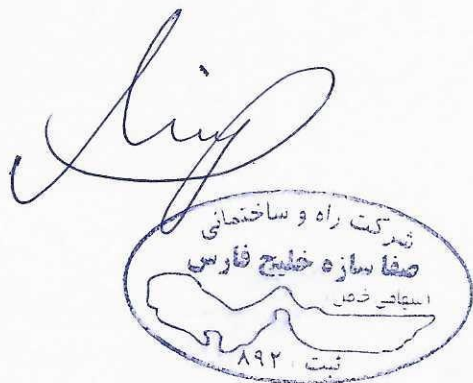 شرکت راه و ساختمانی
صفا سازه خلیج فارس
(سهامی خاص)
ثبت ۸۹۲